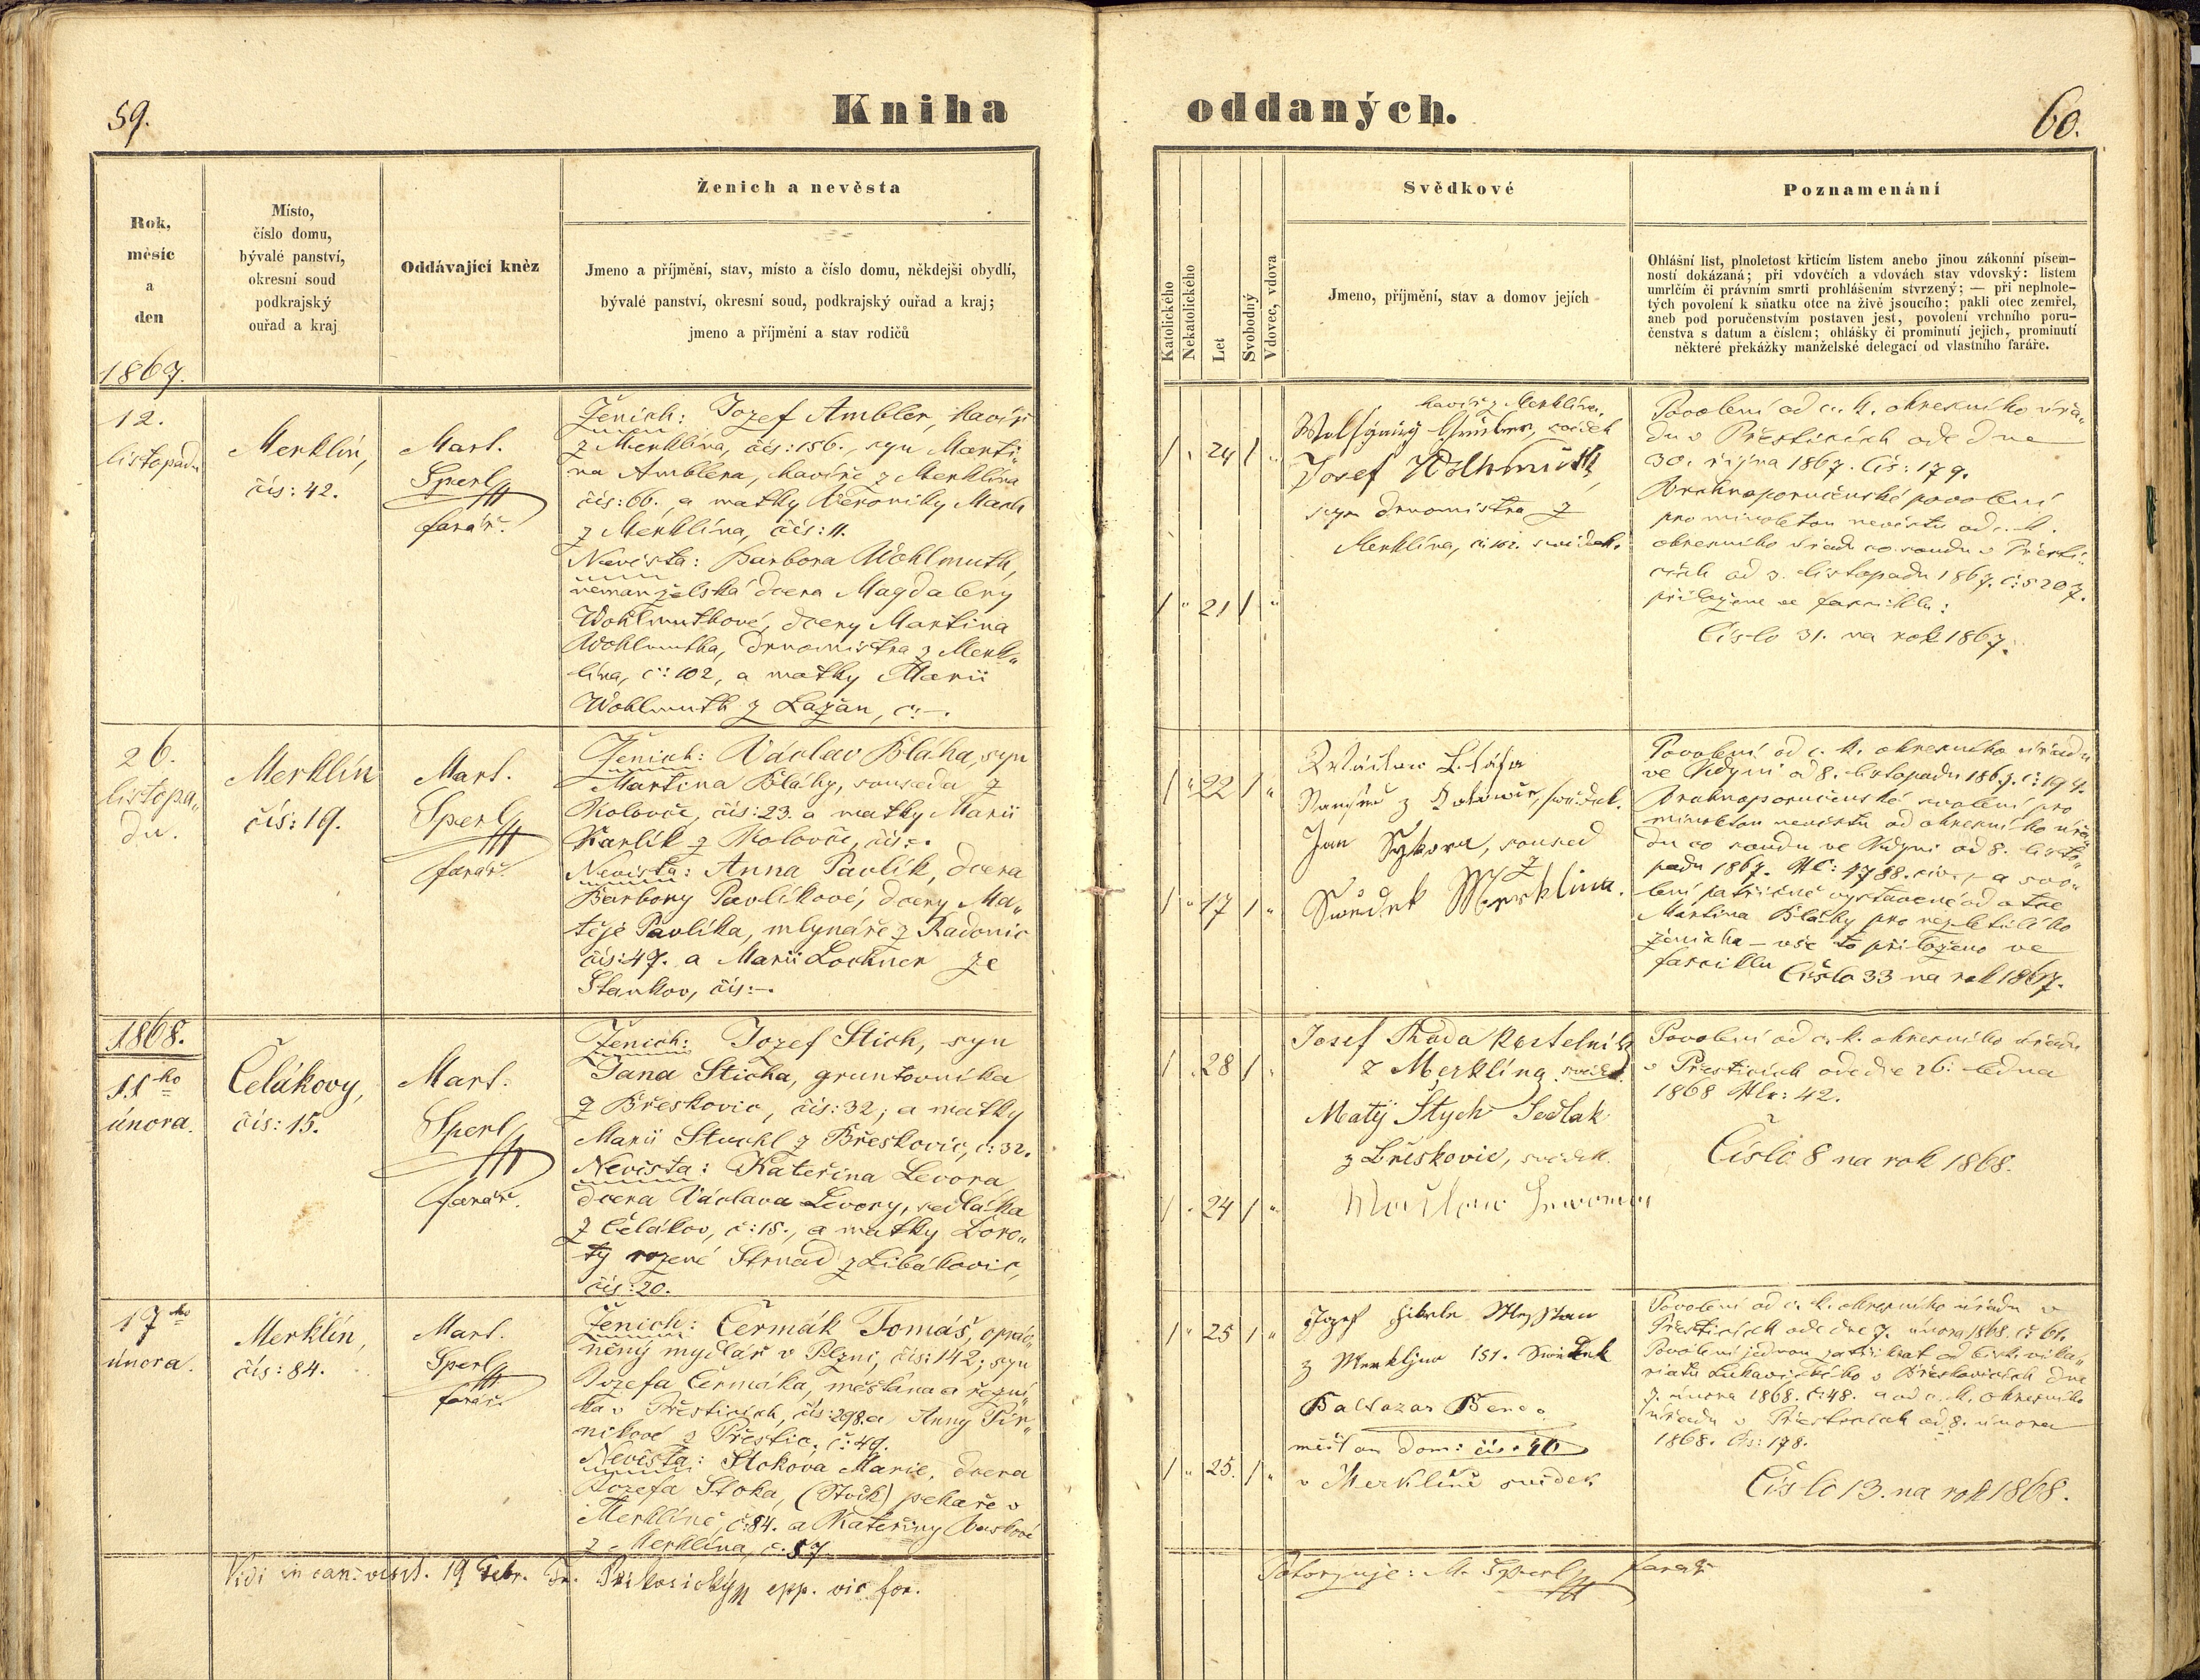 59.
Kniha
Rok,
měsíc
a
den
Místo,
číslo domu,
bývalé panství,
okresní soud
podkrajský
ouřad a kraj
Oddávající kněz
Ženich a nevěsta
Jmeno a příjmění, stav, místo a číslo domu, někdejši obydlí,
bývalé panství, okresní soud, podkrajský ouřad a kraj;
jmeno a příjmění a stav rodičů
1867.
12.
listopadu
Merklín,
čís: 42.
Mart.
Sperl
farář.
Ženich: Jozef Ambler, havíř
z Merklína, čís: 156., syn Marti„
na Amblera, havíře z Merklína
čís: 66. a matky Veroniky Mach
z Merklína, čís: 11.
Nevěsta: Barbora Wohlmuth,
nemanželská dcera Magdaleny
Wohlmuthové, dcery Martina
Wohlmutha, drnomistra z Merk„
lína, č: 102, a matky Marii
Wohlmuth z Lažan, č: –.
26.
listopa„
du.
Merklín
čís: 19.
Mart.
Sperl
farář
Ženich: Václav Bláha, syn
Martina Bláhy, souseda z
Kolovče, čís: 23. a matky Marii
Karlík z Kolovče, čís: –.
Nevěsta: Anna Pavlík, dcera
Barbory Pavlíkové, dcery Ma„
těje Pavlíka, mlynáře z Radonic
čís: 47. a Marii Lochner ze
Stankov, čís: –.
1868.
11ho
února.
Čelákovy,
čís: 15.
Mart.
Sperl
farář.
Ženich: Jozef Stich, syn
Jana Sticha, gruntovníka
z Břeskovic, čís: 32; a matky
Marii Stuchl z Břeskovic, č: 32.
Nevěsta: Kateřina Levora
dcera Václava Levory, sedláka
z Čelákov, č: 15., a matky Doro„
ty rozené Strnad z Libákovic,
čís: 20.
17ho
února.
Merklín,
čís: 84.
Mart.
Sperl
farář.
Ženich: Čermák Tomáš, opráv„
něný mydlář v Plzni, čís: 142; syn
Jozefa Čermáka, měšťana a řezní„
ka v Přešticích, čís: 298. a Anny
nikové z Přeštic, č: 49.
Nevěsta: Stokova Marie, dcera
Jozefa Stoka, (Stock) pekaře v
Merklíně, č: 84. a Kateřiny
z Merklína, č. 57
Vidi in can: visit. 19 Febr. Fr. epp. vic for.
oddaných.
60.
Katolického
Nekatolického
Let
Svobodný
Vdovec, vdova
Svědkové
Jmeno, příjmění, stav a domov jejích
Poznamenání
Ohlášní list, plnoletost křticím listem anebo jinou zákonní písem-
ností dokázaná; při vdovčích a vdovách stav vdovský: listem
umrlčím či právním smrti prohlášením stvrzený; — při neplnole-
tých povolení k sňatku otce na živě jsoucího; pakli otec zemřel,
aneb pod poručenstvím postaven jest, povolení vrchního poru-
čenstva s datum a číslem; ohlášky či prominutí jejich, prominutí
některé překážky manželské delegací od vlastního faráře.
1 „ 24 1 „
havíř z Merklína,
svědek
Josef Wolhmuth
syn drnomistra z
Merklína, čís 102. svědek.
1 „ 21 1 „
Povolení od c. k. okresního úřa„
du v Přešticích ode dne
30. října 1867. Čís: 179.
Vrchnoporučenské povolení
pro nezletilou nevěstu od c. k.
okresního úřadu co soudu v Přešti„
cích od 3. listopadu 1867. č: 5207.
přiloženo ve fasciklu:
Číslo 31. na rok 1867.
1 „ 22 1 „
svědek.
Jan Sykora, soused
z
Swědek Merklína.
1 „ 17 1 „
Povolení od c. k. okresního úřadu
ve Kdyni od 8. listopadu 1867. č: 194.
Vrchnoporučenské svolení pro
nezletilou nevěstu od okresního úřa„
du co soudu ve Kdyni od 8. listo„
padu 1867. Nč: 4788. civ. – a svo„
lení patřičně vystavené od otce
Martina Bláhy pro nezletilého
ženicha – vše to přiloženo ve
fasciklu Číslo 33 na rok 1867.
1 „ 28 1 „
Josef Rada kostelník
z Merklína svědek.
Matij Štych Sedlak
z Břeskovic, svědek.
1 „ 24 1 „
Povolení od c. k. okresního úřadu
v Přešticích ode dne 26. ledna
1868 Nro: 42.
Číslo 8 na rok 1868.
1 „ 25 1 „
Jozef
z Merkljna 151. Swědek
Baltazar
měšťan dom: čís:
v Merklíně svědek
1 „ 25. 1 „
Povolení od c. k. okresního úřadu v
Přešticích ode dne 7. února 1868. č: 61.
Povolení jednou za třikrát od bisk. vika„
riatu Lukavického v Břeskovicích dne
7. února 1868. č: 48. a od c. k. okresního
úřadu v Přešticích od 8. února
1868. čís: 178.
Číslo 13. na rok 1868.
Potvrzuje: M. Sperl farář